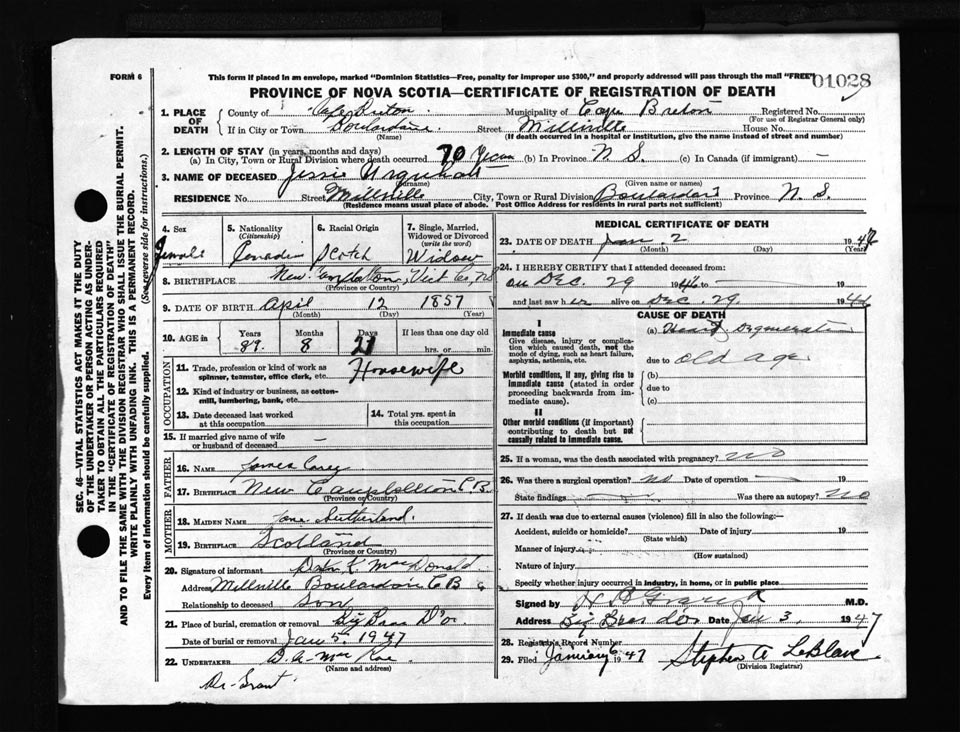 FORM 6
This form if placed in an envelope, marked "Dominion Statistics—Free, penalty for improper use $300," and properly addressed will pass through the mail "FREE"
01028
PROVINCE OF NOVA SCOTIA—CERTIFICATE OF REGISTRATION OF DEATH
SEC. 46—VITAL STATISTICS ACT MAKES IT THE DUTY
OF THE UNDERTAKER OR PERSON ACTING AS UNDER-
TAKER TO OBTAIN ALL THE PARTICULARS REQUIRED
IN THE "CERTIFICATE OF REGISTRATION OF DEATH"
AND TO FILE THE SAME WITH THE DIVISION REGISTRAR WHO SHALL ISSUE THE BURIAL PERMIT.
WRITE PLAINLY WITH UNFADING INK. THIS IS A PERMANENT RECORD.
Every item of Information should be carefully supplied. (See reverse side for instructions.)
1. PLACE OF DEATH
County of Cape Breton Municipality of Cape Breton Registered No.
(For use of Registrar General only)
If in City or Town Boulardarie Street Millville House No.
(Name) (If death occurred in a hospital or institution, give the name instead of street and number)
2. LENGTH OF STAY (in years, months and days)
(a) In City, Town or Rural Division where death occurred 70 Years (b) In Province N. S. (c) In Canada (if immigrant) —
3. NAME OF DECEASED Jessie Urquhart
(Surname) (Given name or names)
RESIDENCE No. Street Millville City, Town or Rural Division Boulardarie Province N. S.
(Residence means usual place of abode. Post Office Address for residents in rural parts not sufficient)
4. Sex Female
5. Nationality (Citizenship) Canadian
6. Racial Origin Scotch
7. Single, Married, Widowed or Divorced (write the word) Widow
8. BIRTHPLACE New Campbellton, Vict Co, NS
(Province or County)
9. DATE OF BIRTH April 12 1857
(Month) (Day) (Year)
10. AGE in Years 89 Months 8 Days 21 If less than one day old
hrs. or min.
OCCUPATION
11. Trade, profession or kind of work as spinner, teamster, office clerk, etc. Housewife
12. Kind of industry or business, as cotton-mill, lumbering, bank, etc.
13. Date deceased last worked at this occupation
14. Total yrs. spent in this occupation
15. If married give name of wife or husband of deceased —
FATHER
16. NAME James Carey
17. BIRTHPLACE New Campbellton C. B.
(Province or County)
MOTHER
18. MAIDEN NAME Jane Sutherland
19. BIRTHPLACE Scotland
(Province or County)
20. Signature of informant K. MacDonald
Address Millville Boulardarie C B
Relationship to deceased Son
21. Place of burial, cremation or removal Big Bras D'or
Date of burial or removal Jan 5th 1947
22. UNDERTAKER D. A. MacRae
(Name and address)
Dr. Grant
MEDICAL CERTIFICATE OF DEATH
23. DATE OF DEATH Jan. 2 1947
(Month) (Day)
24. I HEREBY CERTIFY that I attended deceased from:
on Dec. 29 1946 to — 19
and last saw her alive on Dec. 29 1946
CAUSE OF DEATH
I
Immediate cause
Give disease, injury or complica-
tion which caused death, not the
mode of dying, such as heart failure,
asphyxia, asthenia, etc.
(a) Heart Degeneration
due to old age
Morbid conditions, if any, giving rise to
immediate cause (stated in order
proceeding backwards from im-
mediate cause).
(b)
due to
(c)
II
Other morbid conditions (if important)
contributing to death but not
causally related to immediate cause.
25. If a woman, was the death associated with pregnancy? no
26. Was there a surgical operation? no Date of operation — 19
State findings Was there an autopsy? no
27. If death was due to external causes (violence) fill in also the following:—
Accident, suicide or homicide? Date of injury 19
(State which)
Manner of injury
(How sustained)
Nature of injury
Specify whether injury occurred in industry, in home, or in public place
Signed by M.D.
Address Big Bras d'or Date Jan 3, 1947
28. Registrar's Record Number
29. Filed January 6 1947 Stephen A LeBlanc
(Division Registrar)